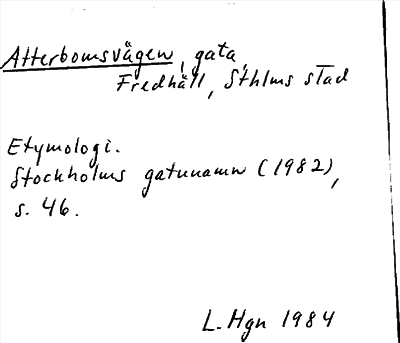 Atterbomsvägen, gata,
Fredhäll, Sthlms stad
Etymologi.
Stockholms gatunamn (1982),
s. 46.
L. Hgn 1984